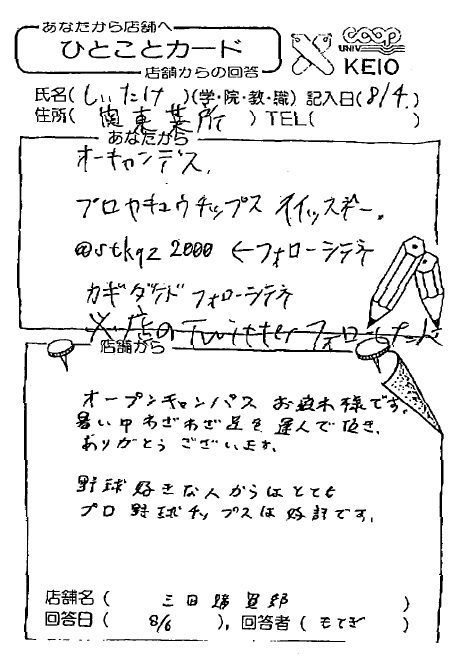 あなたから店舗へ
ひとことカード
店舗からの回答
UNIV. COOP
KEIO
氏名( しいたけ )(学・院・教・職) 記入日(8/4.)
住所( 関東某所 ) TEL( )
あなたから
オーキャンデス.
プロヤキュウチップス オイッスギー.
@stkqz2000 ←フォローシテネ
カギダケド フォローシテネ
店のTwitterフォロー
店舗から
オープンキャンパス お疲れ様です。
暑い中わざわざ足を運んで頂き、
ありがとうございます。
野球好きな人からはとても
プロ野球チップスは好評です。
店舗名( 三田購買部 )
回答日( 8/6 ), 回答者( もてぎ )